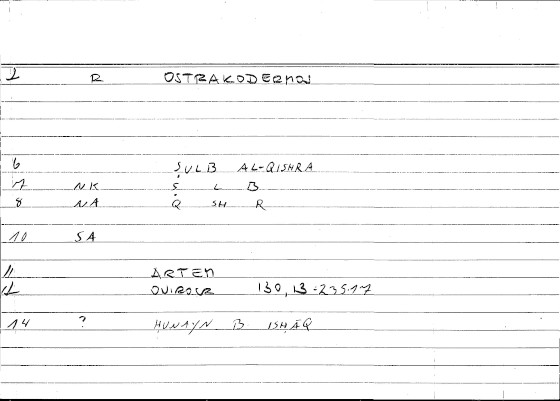 2 R OSTRAKODERMOS
6 ṢULB AL-QISHRA
7 NK Ṣ L B
8 NA Q SH R
10 SA
11 ARTEM
12 130, 13-235.17
14 ? ḤUNAYN B ISḤĀQ